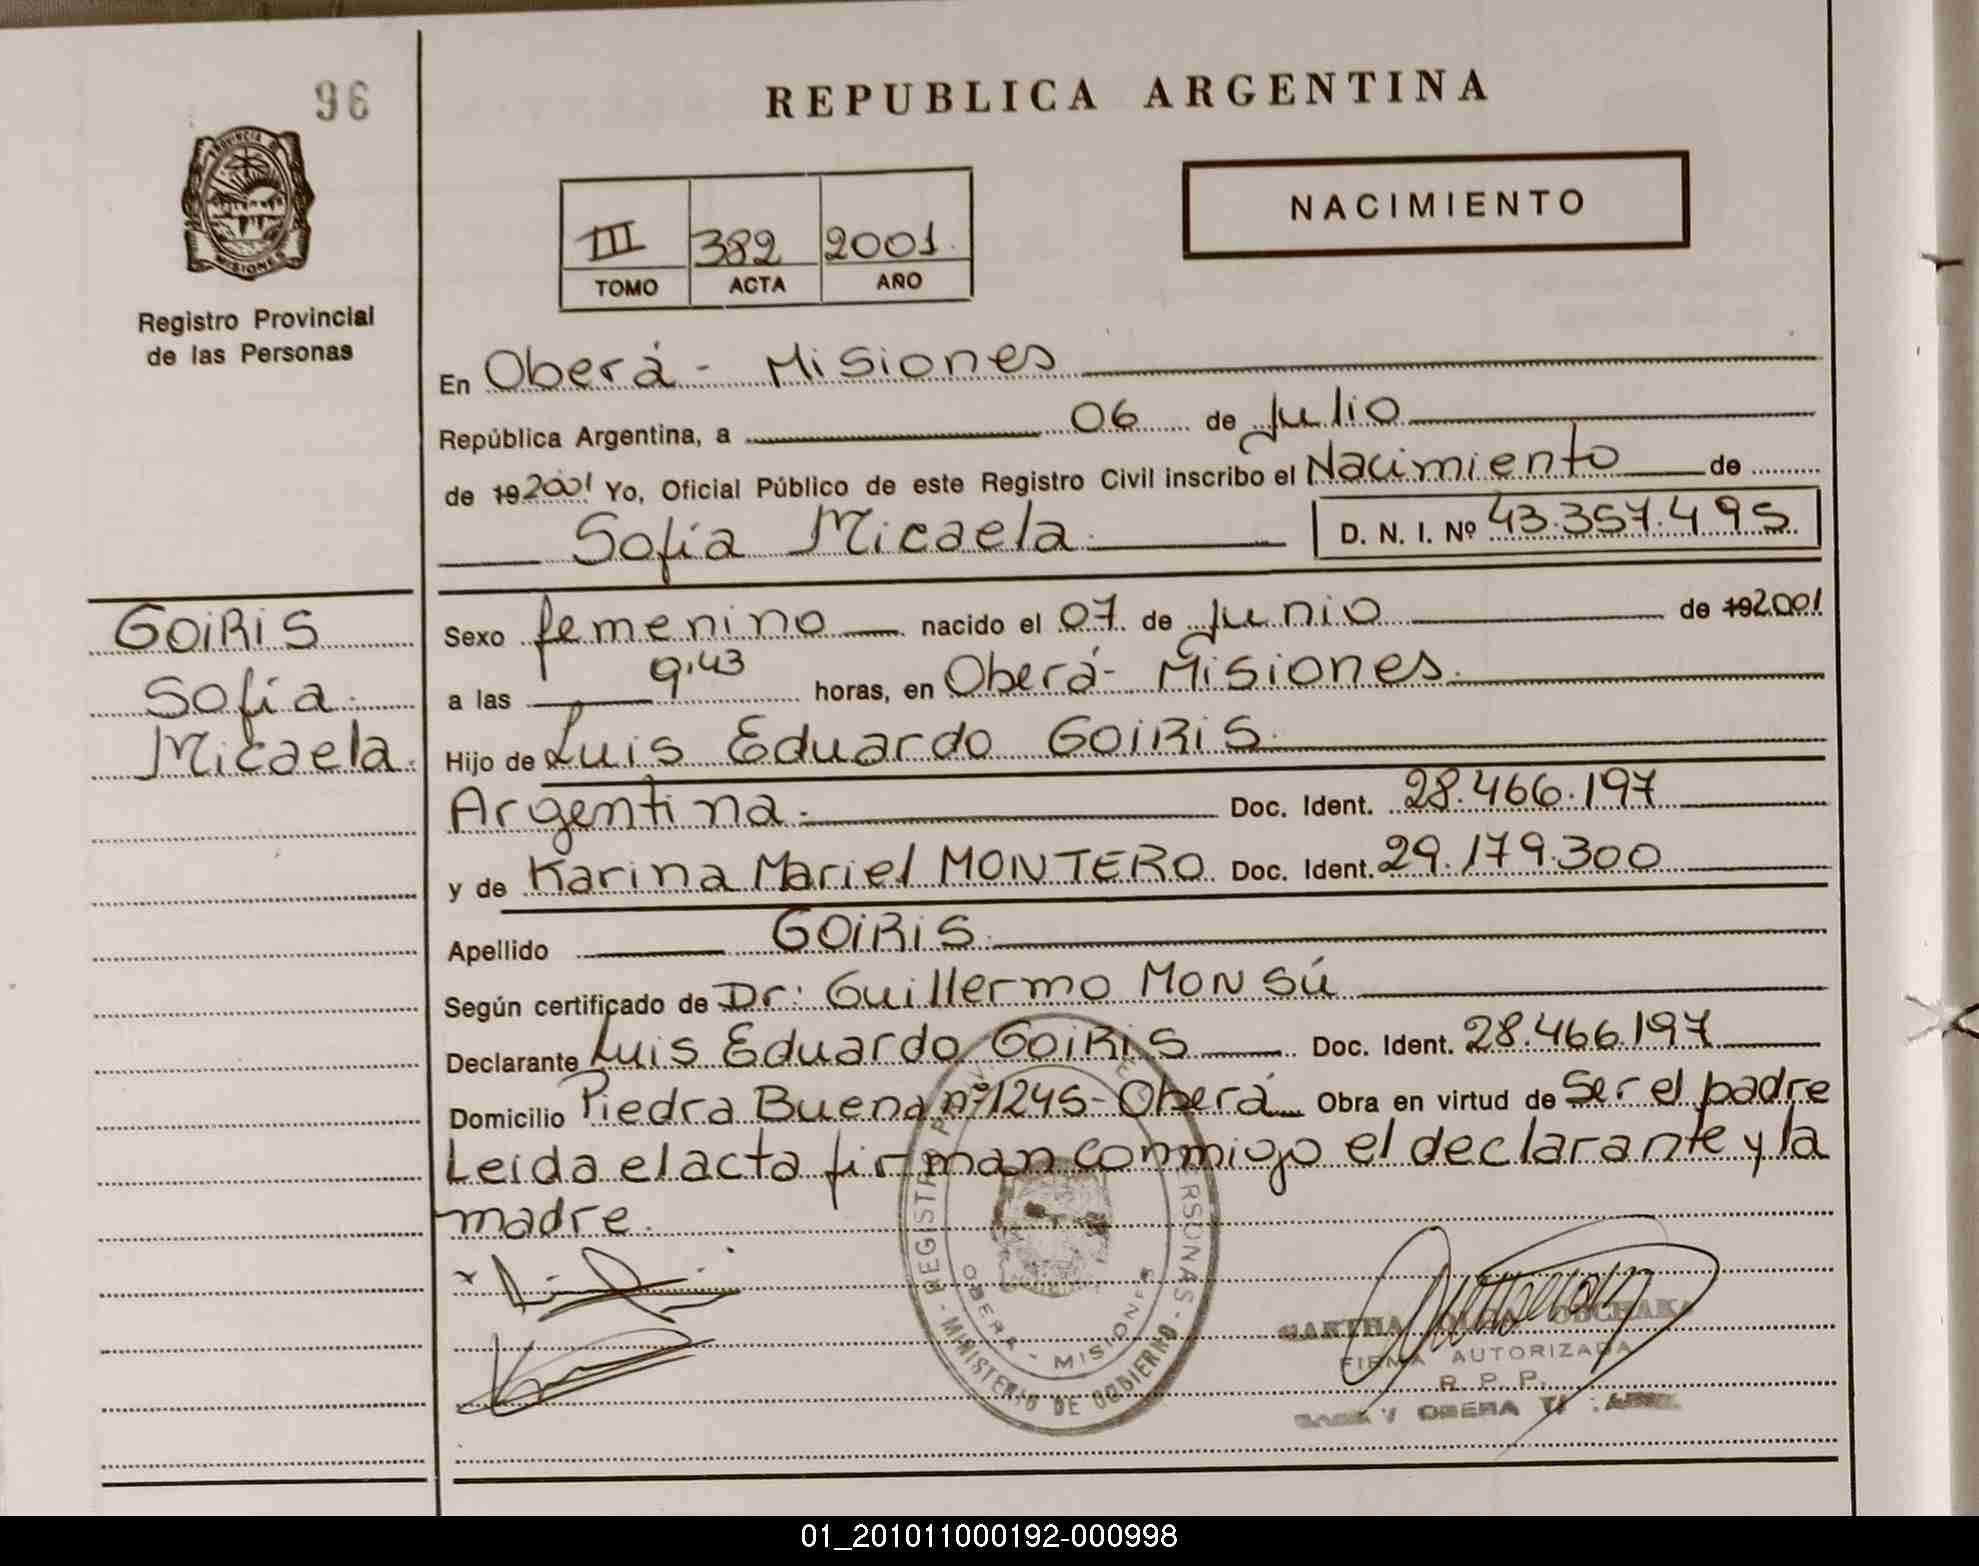 96
REPUBLICA ARGENTINA
PROVINCIA DE
MISIONES
Registro Provincial
de las Personas
III 382 2001.
TOMO ACTA AÑO
NACIMIENTO
En Oberá - Misiones
República Argentina, a 06 de Julio
de 19 2001 Yo, Oficial Público de este Registro Civil inscribo el Nacimiento de
Sofía Micaela. D. N. I. Nº 43.357.495
GOIRIS
Sofía
Micaela.
Sexo femenino nacido el 07 de Junio de 19 2001
a las 9,43 horas, en Oberá - Misiones.
Hijo de Luis Eduardo GOIRIS.
Argentina. Doc. Ident. 28.466.197
y de Karina Mariel MONTERO Doc. Ident. 29.179.300
Apellido GOIRIS.
Según certificado de Dr: Guillermo MONSÚ
Declarante Luis Eduardo GOIRIS Doc. Ident. 28.466.197
Domicilio Piedra Buena nº 1245 - Oberá Obra en virtud de Ser el padre
Leída el acta firman conmigo el declarante y la
madre.
REGISTRO PERSONAS
MINISTERIO DE GOBIERNO
OBERA - MISIONES
FIRMA AUTORIZADA
R. P. P.
OBERA
01_201011000192-000998